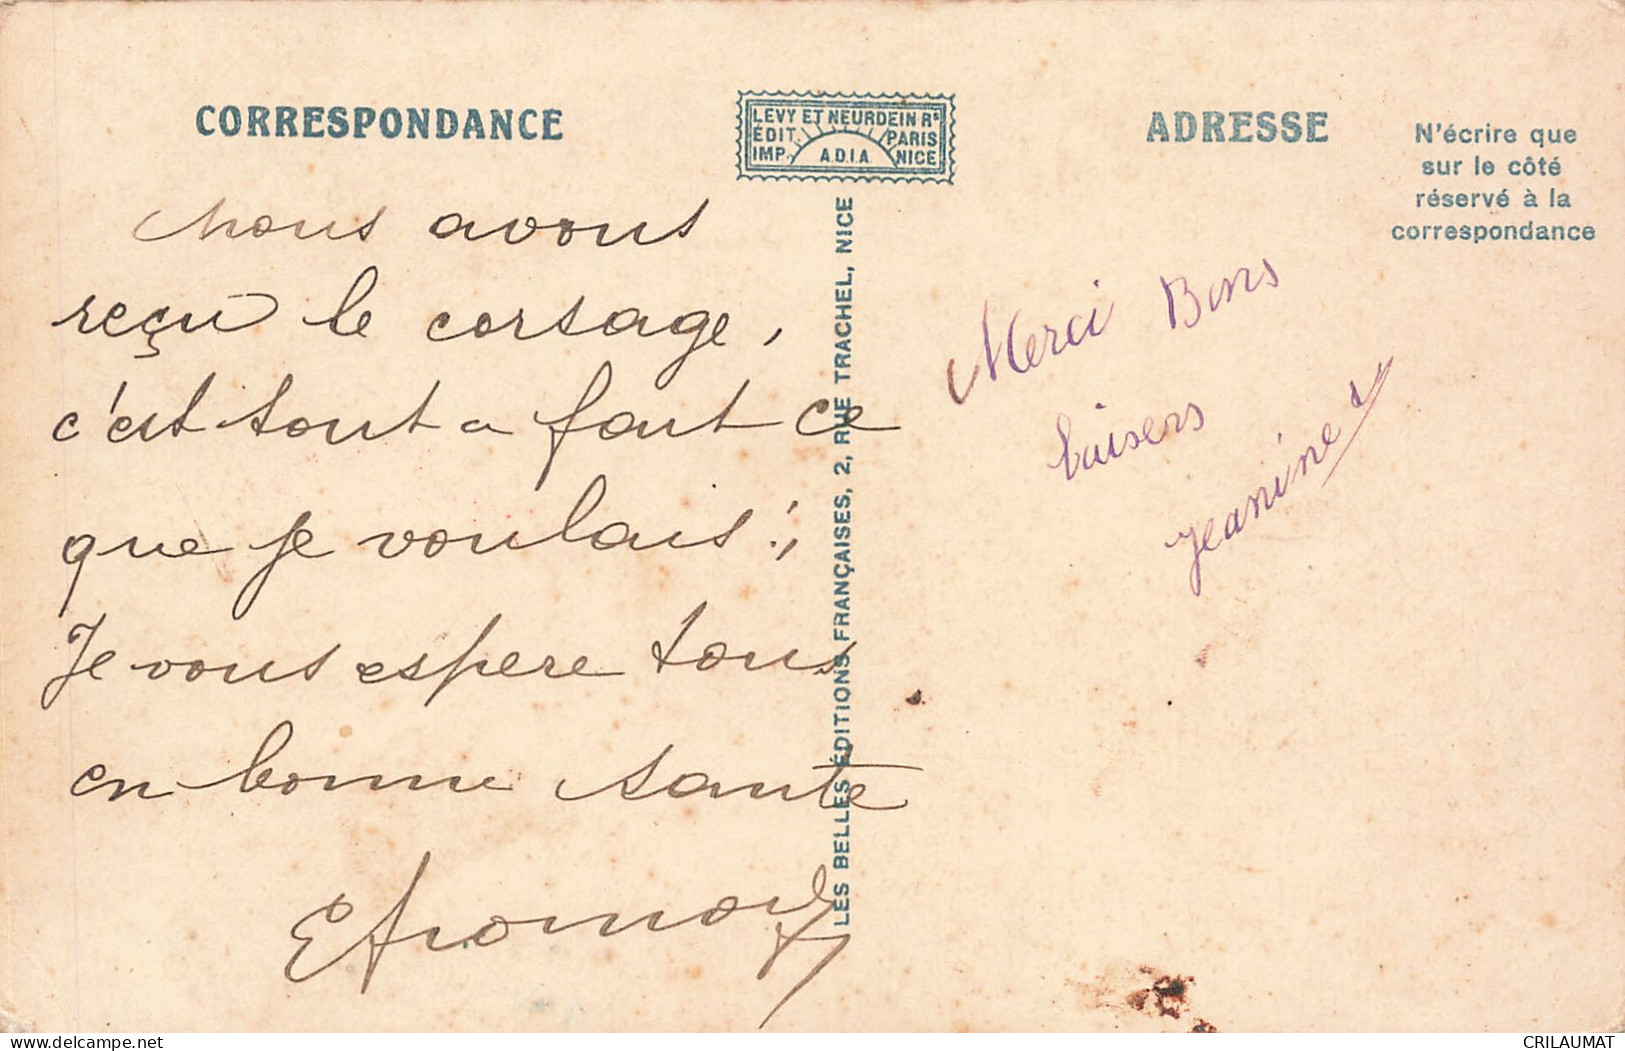 CORRESPONDANCE
LEVY ET NEURDEIN Rs
ÉDIT. PARIS
IMP. A.D.I.A NICE
ADRESSE
N'écrire que
sur le côté
réservé à la
correspondance
Nous avons
reçu le corsage,
c'est tout a fait ce
que je voulais!,
Je vous espere tous
en bonne sante
LES BELLES ÉDITIONS FRANÇAISES, 2, RUE TRACHEL, NICE
Merci Bons
baisers
Jeanine
delcampe.net
CRILAUMAT